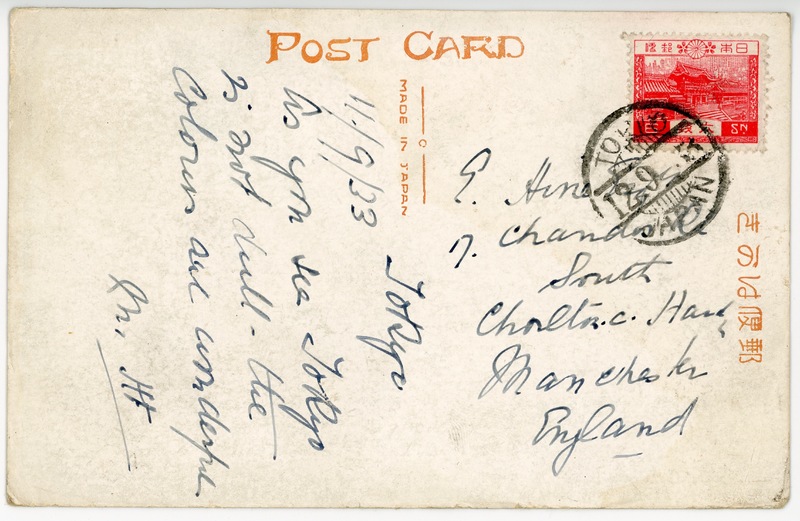 POST CARD
MADE IN JAPAN
日本郵便
6 SN
TOKIO
9.33
JAPAN
きがは便郵
Tokyo
11/9/33
As you see Tokyo
is not dull - the
Colours are wonderful
M. H
E.
7. Chandos
South
Chorlton.c. Hardy
Manchester
England